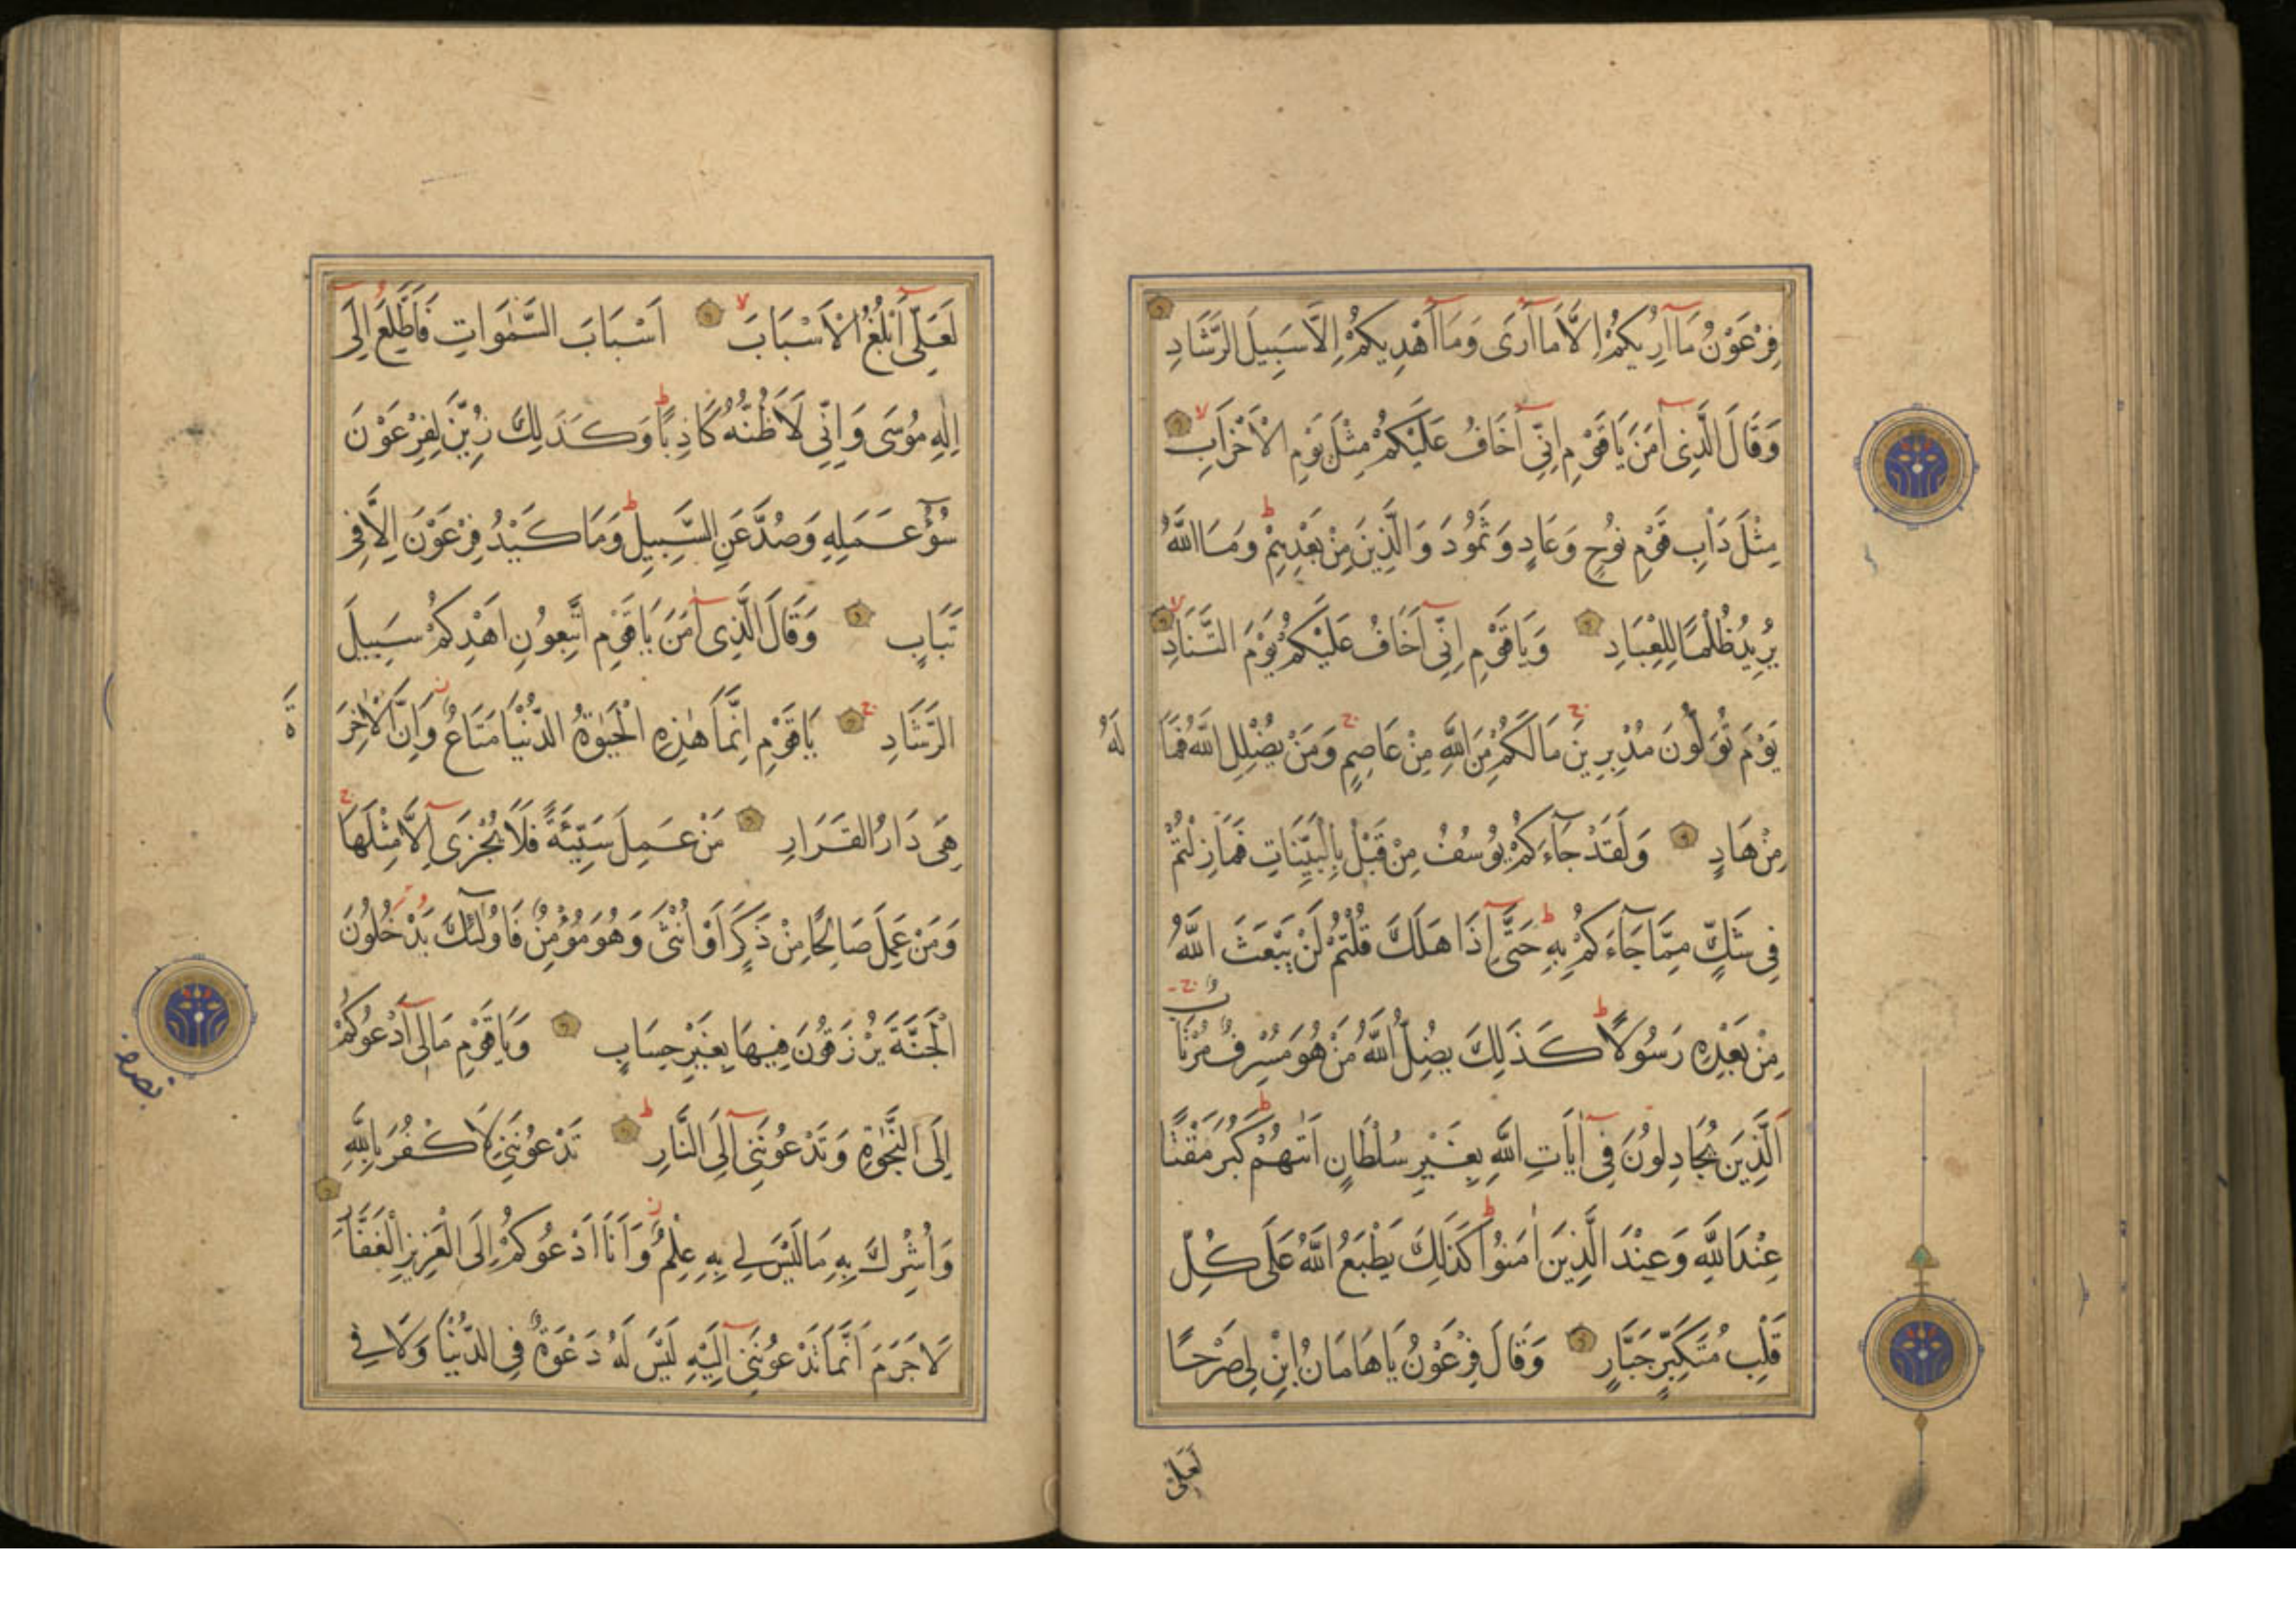 فِرْعَوْنُ مَآ اُرِيكُمْ اِلَّا مَآ اَرَى وَمَآ اَهْدِيكُمْ اِلَّا سَبِيلَ الرَّشَادِ
وَقَالَ الَّذِى آمَنَ يَاقَوْمِ اِنِّى آخَافُ عَلَيْكُمْ مِثْلَ يَوْمِ الْاَحْزَابِ
مِثْلَ دَاْبِ قَوْمِ نُوحٍ وَعَادٍ وَثَمُودَ وَالَّذِينَ مِنْ بَعْدِهِمْ وَمَا اللّٰهُ
يُرِيدُ ظُلْمًا لِلْعِبَادِ وَيَاقَوْمِ اِنِّى آخَافُ عَلَيْكُمْ يَوْمَ التَّنَادِ
يَوْمَ تُوَلُّونَ مُدْبِرِينَ مَا لَكُمْ مِنَ اللّٰهِ مِنْ عَاصِمٍ وَمَنْ يُضْلِلِ اللّٰهُ فَمَا لَهُ
مِنْ هَادٍ وَلَقَدْ جَآءَكُمْ يُوسُفُ مِنْ قَبْلُ بِالْبَيِّنَاتِ فَمَا زِلْتُمْ
فِى شَكٍّ مِمَّا جَآءَكُمْ بِهِ حَتَّى اِذَا هَلَكَ قُلْتُمْ لَنْ يَبْعَثَ اللّٰهُ
مِنْ بَعْدِهِ رَسُولًا كَذَلِكَ يُضِلُّ اللّٰهُ مَنْ هُوَ مُسْرِفٌ مُرْتَابٌ
اَلَّذِينَ يُجَادِلُونَ فِى آيَاتِ اللّٰهِ بِغَيْرِ سُلْطَانٍ اَتٰهُمْ كَبُرَ مَقْتًا
عِنْدَ اللّٰهِ وَعِنْدَ الَّذِينَ اٰمَنُوا كَذَلِكَ يَطْبَعُ اللّٰهُ عَلَى كُلِّ
قَلْبِ مُتَكَبِّرٍ جَبَّارٍ وَقَالَ فِرْعَوْنُ يَاهَامَانُ ابْنِ لِى صَرْحًا
لَعَلِّى
لَعَلِّى اَبْلُغُ الْاَسْبَابَ اَسْبَابَ السَّمٰوَاتِ فَاَطَّلِعَ اِلَى
اِلٰهِ مُوسَى وَاِنِّى لَاَظُنُّهُ كَاذِبًا وَكَذَلِكَ زُيِّنَ لِفِرْعَوْنَ
سُوٓءُ عَمَلِهِ وَصُدَّ عَنِ السَّبِيلِ وَمَا كَيْدُ فِرْعَوْنَ اِلَّا فِى
تَبَابٍ وَقَالَ الَّذِى آمَنَ يَاقَوْمِ اتَّبِعُونِ اَهْدِكُمْ سَبِيلَ
الرَّشَادِ يَاقَوْمِ اِنَّمَا هٰذِهِ الْحَيٰوةُ الدُّنْيَا مَتَاعٌ وَاِنَّ الْاٰخِرَةَ
هِىَ دَارُ الْقَرَارِ مَنْ عَمِلَ سَيِّئَةً فَلَا يُجْزَى اِلَّا مِثْلَهَا
وَمَنْ عَمِلَ صَالِحًا مِنْ ذَكَرٍ اَوْ اُنْثَى وَهُوَ مُؤْمِنٌ فَاُولٰٓئِكَ يَدْخُلُونَ
الْجَنَّةَ يُرْزَقُونَ فِيهَا بِغَيْرِ حِسَابٍ وَيَاقَوْمِ مَا لِى آدْعُوكُمْ
اِلَى النَّجٰوةِ وَتَدْعُونَنِى اِلَى النَّارِ تَدْعُونَنِى لِاَكْفُرَ بِاللّٰهِ
وَاُشْرِكَ بِهِ مَا لَيْسَ لِى بِهِ عِلْمٌ وَاَنَا اَدْعُوكُمْ اِلَى الْعَزِيزِ الْغَفَّارِ
لَا جَرَمَ اَنَّمَا تَدْعُونَنِى اِلَيْهِ لَيْسَ لَهُ دَعْوَةٌ فِى الدُّنْيَا وَلَا فِى